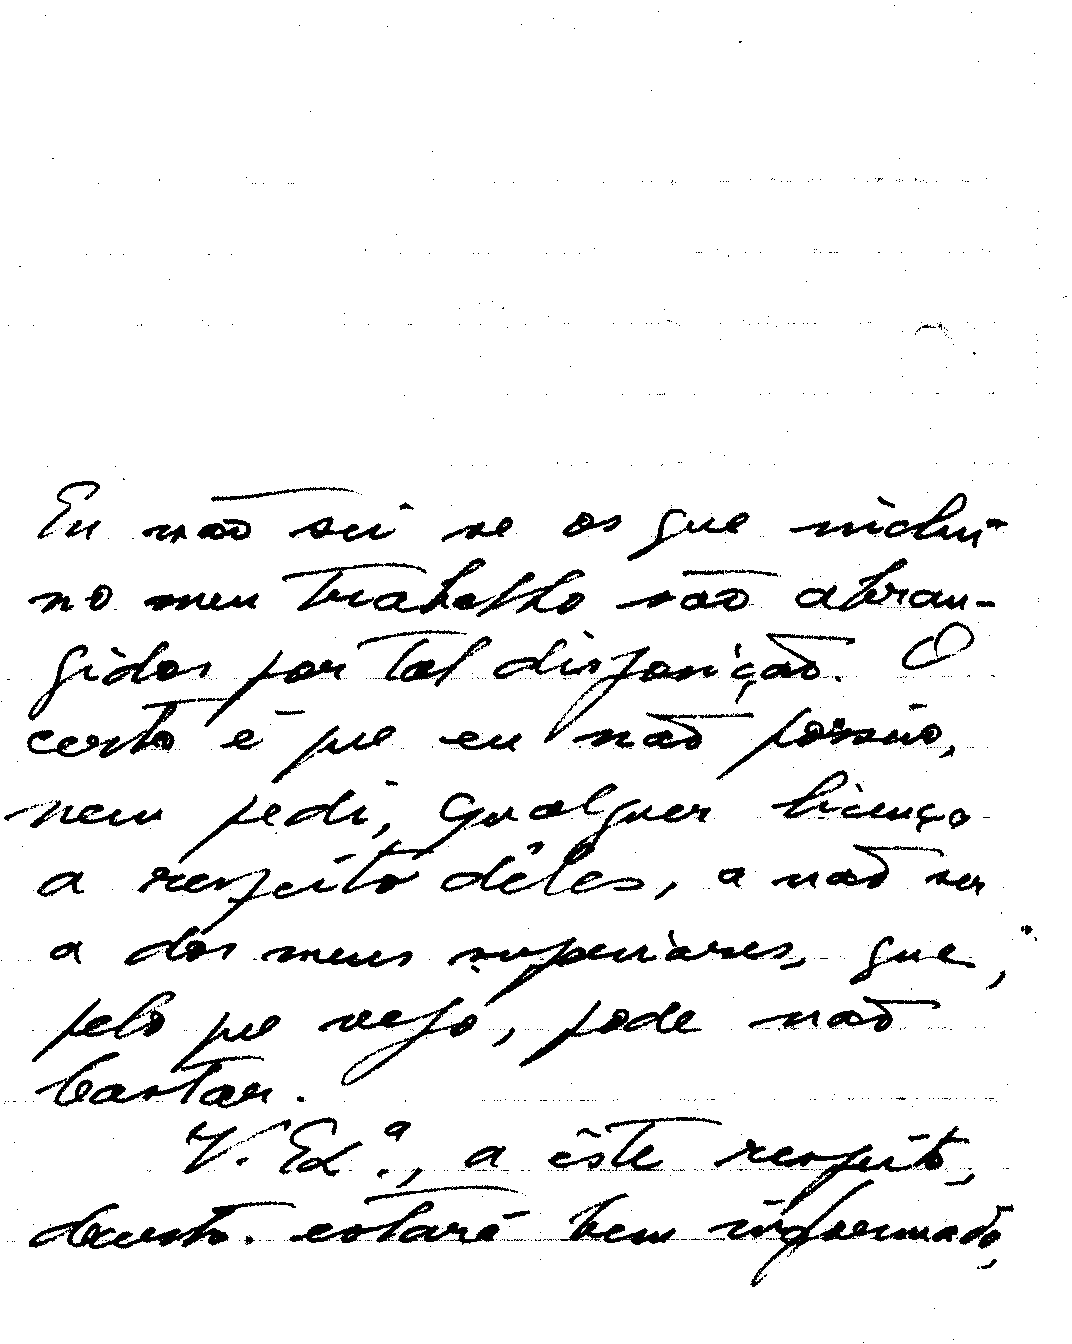 Eu não sei se os que inclui
no meu trabalho são abran-
gidos por tal disposição. O
certo é que eu não possuo,
nem pedi, qualquer licença
a respeito dêles, a não ser
a dos meus superiores, que,
pelo que vejo, pode não
bastar.
V. Ex.ª, a êste respeito,
decerto. estará bem informado,